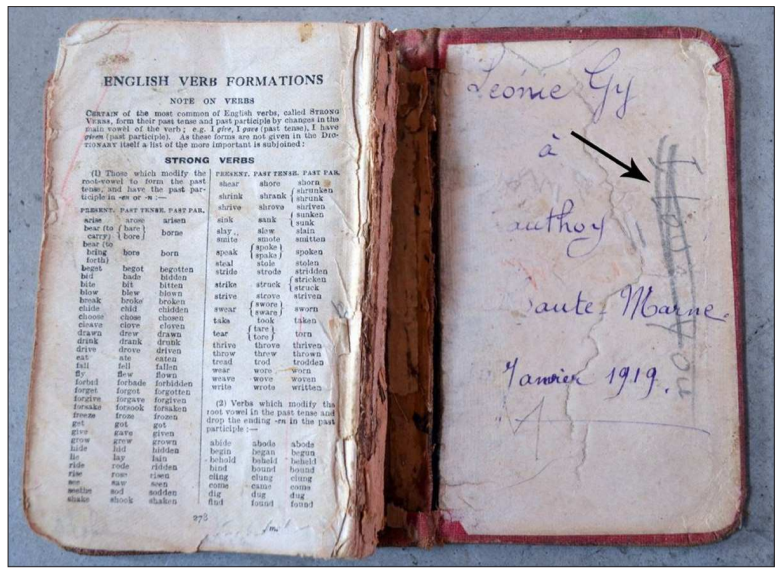 ENGLISH VERB FORMATIONS
NOTE ON VERBS
CERTAIN of the most common of English verbs, called STRONG
VERBS, form their past tense and past participle by changes in the
main vowel of the verb; e.g. I give, I gave (past tense), I have
given (past participle). As these forms are not given in the DIC-
TIONARY itself a list of the more important is subjoined:
STRONG VERBS
(1) Those which modify the
root-vowel to form the past
tense, and have the past par-
ticiple in -en or -n :—
PRESENT. PAST TENSE. PAST PAR.
arise arose arisen
bear (to carry) { bare bore } borne
bear (to
bring bore born
forth)
beget begot begotten
bid bade bidden
bite bit bitten
blow blew blown
break broke broken
chide chid chidden
choose chose chosen
cleave clove cloven
drawn drew drawn
drink drank drunk
drive drove driven
eat ate eaten
fall fell fallen
fly flew flown
forbid forbade forbidden
forget forgot forgotten
forgive forgave forgiven
forsake forsook forsaken
freeze froze frozen
get got got
give gave given
grow grew grown
hide hid hidden
lie lay lain
ride rode ridden
rise rose risen
see saw seen
seethe sod sodden
shake shook shaken
PRESENT. PAST TENSE. PAST PAR.
shear shore shorn
shrink shrank { shrunken shrunk
shrive shrove shriven
sink sank { sunken sunk
slay slew slain
smite smote smitten
speak { spoke spake } spoken
steal stole stolen
stride strode stridden
strike struck { stricken struck
strive strove striven
swear { swore sware } sworn
take took taken
tear { tare tore } torn
thrive throve thriven
throw threw thrown
tread trod trodden
wear wore worn
weave wove woven
write wrote written
(2) Verbs which modify the
root vowel in the past tense and
drop the ending -en in the past
participle :—
abide abode abode
begin began begun
behold beheld beheld
bind bound bound
cling clung clung
come came come
dig dug dug
find found found
278
Léonie Gy
à
authoy
aute-Marne.
Janvier 1919.